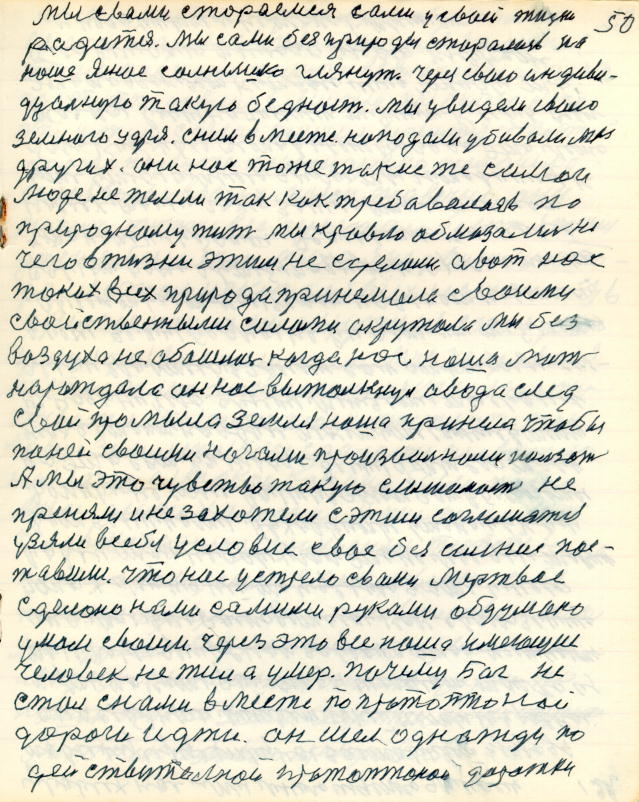 50
мы свами стораемся сами у своей жизни
родится. мы сами без природы старались на
наше яное солнышко глянут. через свою индиви-
дуалную такую бедност. мы увидели свою
земного ядра. сним вместе нападали убивали
других. они нас тоже такие же самои
люде не жлели так как требавалась по
природному жит мы кравю обмазалис ни
чего в жизни этим не сделали авот нас
таких всех природа принемала своими
свойственными силами окружала мы без
воздуха не абашлис когда нас наша мат
нарождала он нас вытолкнул авода след
свой промыла земля наша приняла чтобы
паней своими ногами произвалноми ползат
А мы это чувство такую слышемост не
приняли ине захотели сэтим согласится
узяли всебя условие свое без силное пос-
тавили. что нас устрело свами мертвое
сделоно нами самими руками обдумано
умом своим. через это все наша имеющие
человек не жил а умер. почему Бог не
стал снами вместе попротоптоной
дороги идти. он шел однажды по
действителной протоптоной дорожки